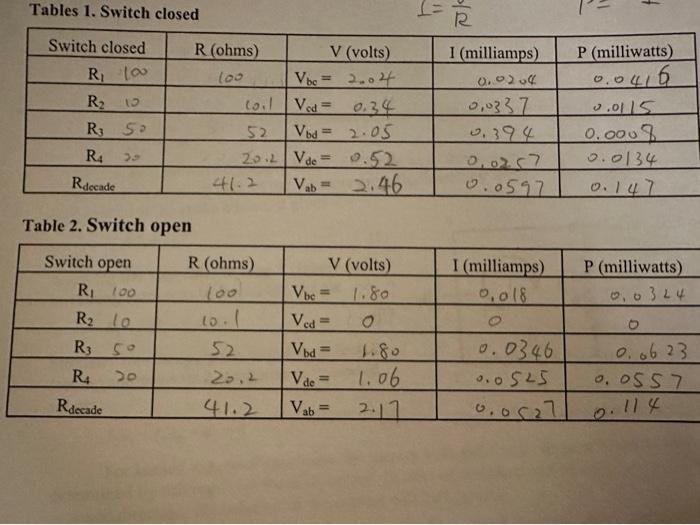 Tables 1. Switch closed
I = V/R
P =
Switch closed R (ohms) V (volts) I (milliamps) P (milliwatts)
R1 100 100 Vbc = 2.04 0.0204 0.0416
R2 10 10.1 Vcd = 0.34 0.0337 0.0115
R3 50 52 Vbd = 2.05 0.394 0.0008
R4 20 20.2 Vde = 0.52 0.0257 0.0134
Rdecade 41.2 Vab = 2.46 0.0597 0.147
Table 2. Switch open
Switch open R (ohms) V (volts) I (milliamps) P (milliwatts)
R1 100 100 Vbc = 1.80 0.018 0.0324
R2 10 10.1 Vcd = 0 0 0
R3 50 52 Vbd = 1.80 0.0346 0.0623
R4 20 20.2 Vde = 1.06 0.0525 0.0557
Rdecade 41.2 Vab = 2.17 0.0527 0.114